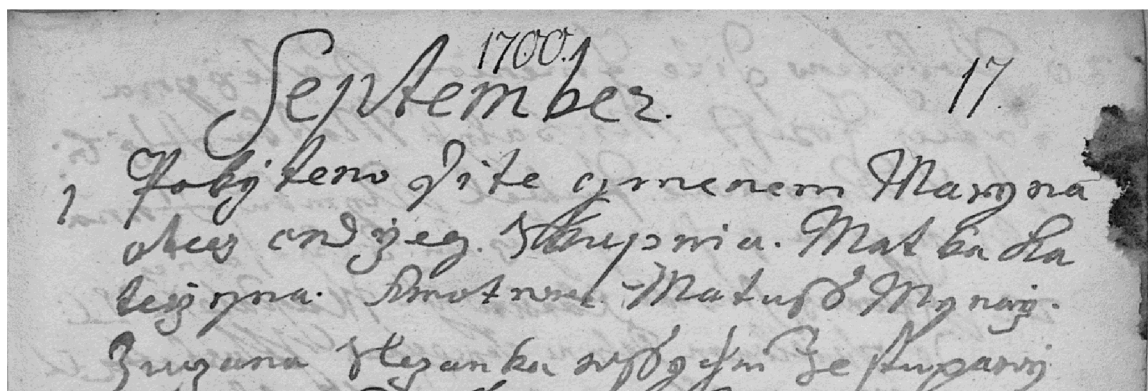 1700.
September. 17
1 Pokrzteno Dite gmenem Maryna
otecz ondrzeg. Skupnia. Matka Ka
terzyna. kmotrowe Matuss Mynarz.
Zuzana Slezanka wssyczni ze stupawy